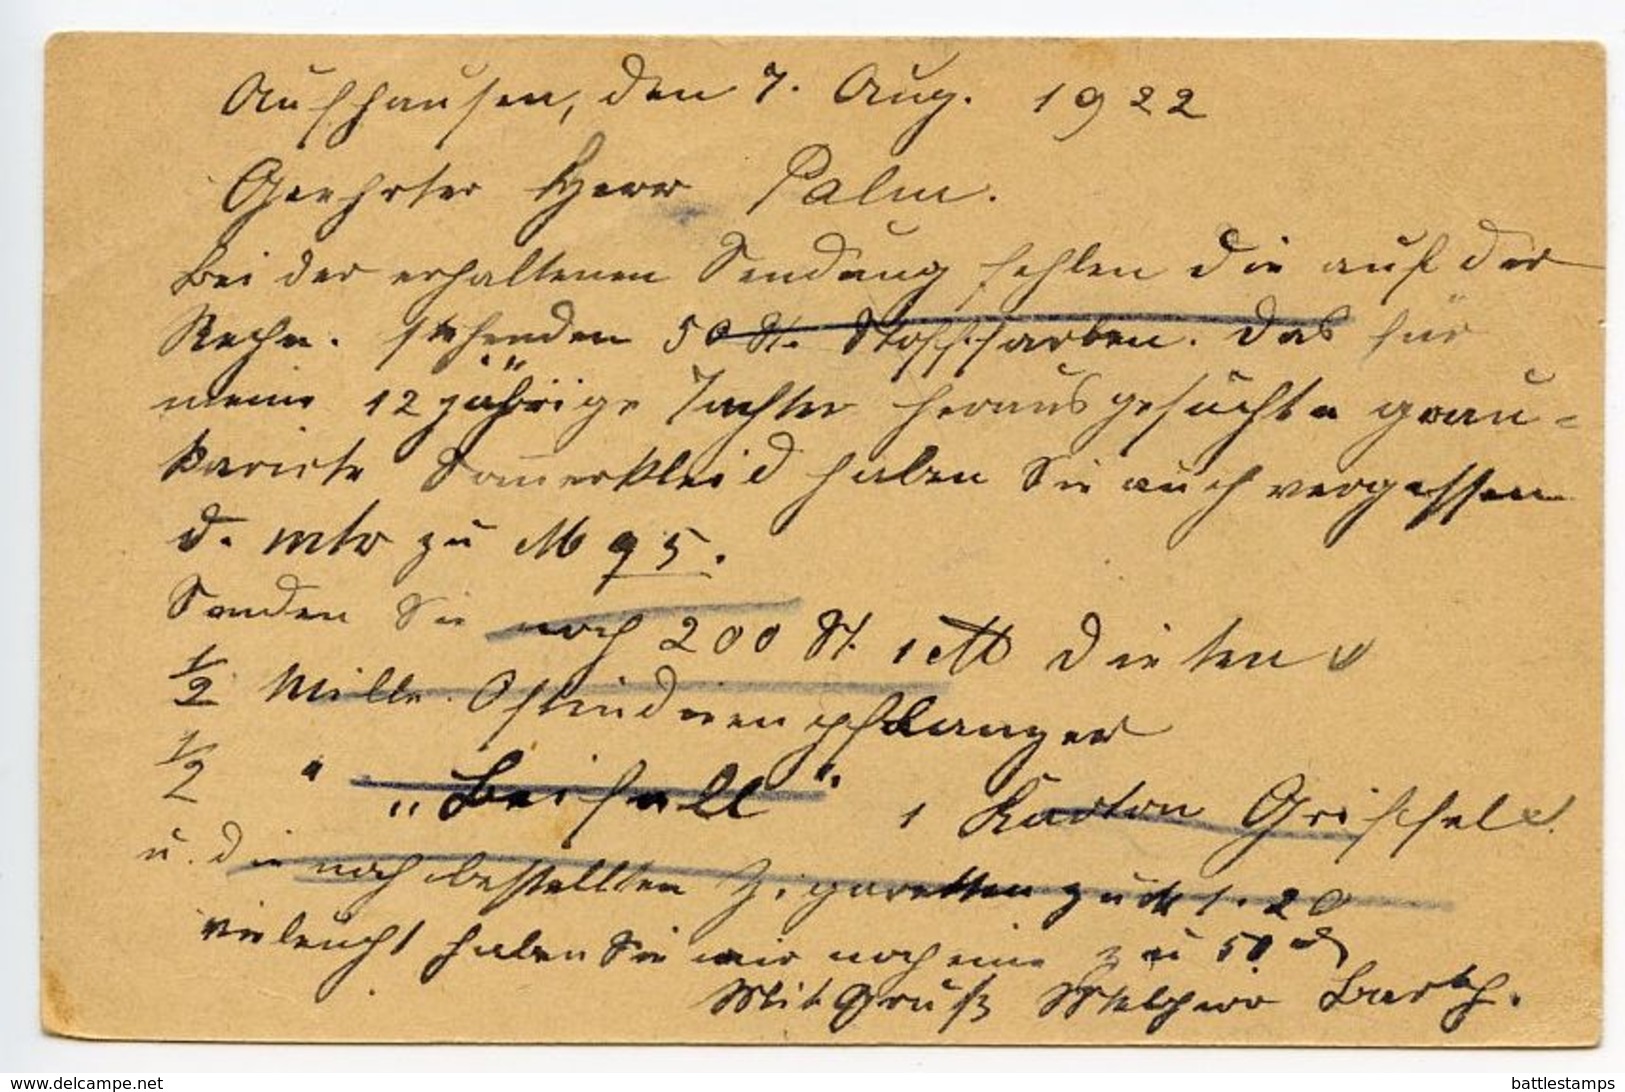 Aufhausen, den 7. Aug. 1922
Geehrter Herr Palm.
Bei der erhaltenen Sendung fehlen die auf der
Rechn. stehenden 50 St. Stoffarben. Das für
meine 12 jährige Tochter herausgesuchte grau=
karirte Somerkleid haben Sie auch vergessen
d. mtr zu M 95.
Senden Sie noch 200 St.
1/2 Mille Ostindienpflanzer
1/2 " "Beifall" 1 Karton Griffel
u. die noch bestellten Zigaretten zu 1.20
vieleicht haben Sie mir noch eine zu 50 d
Mit Gruß Melchior Barth.
www.delcampe.net
battlestamps